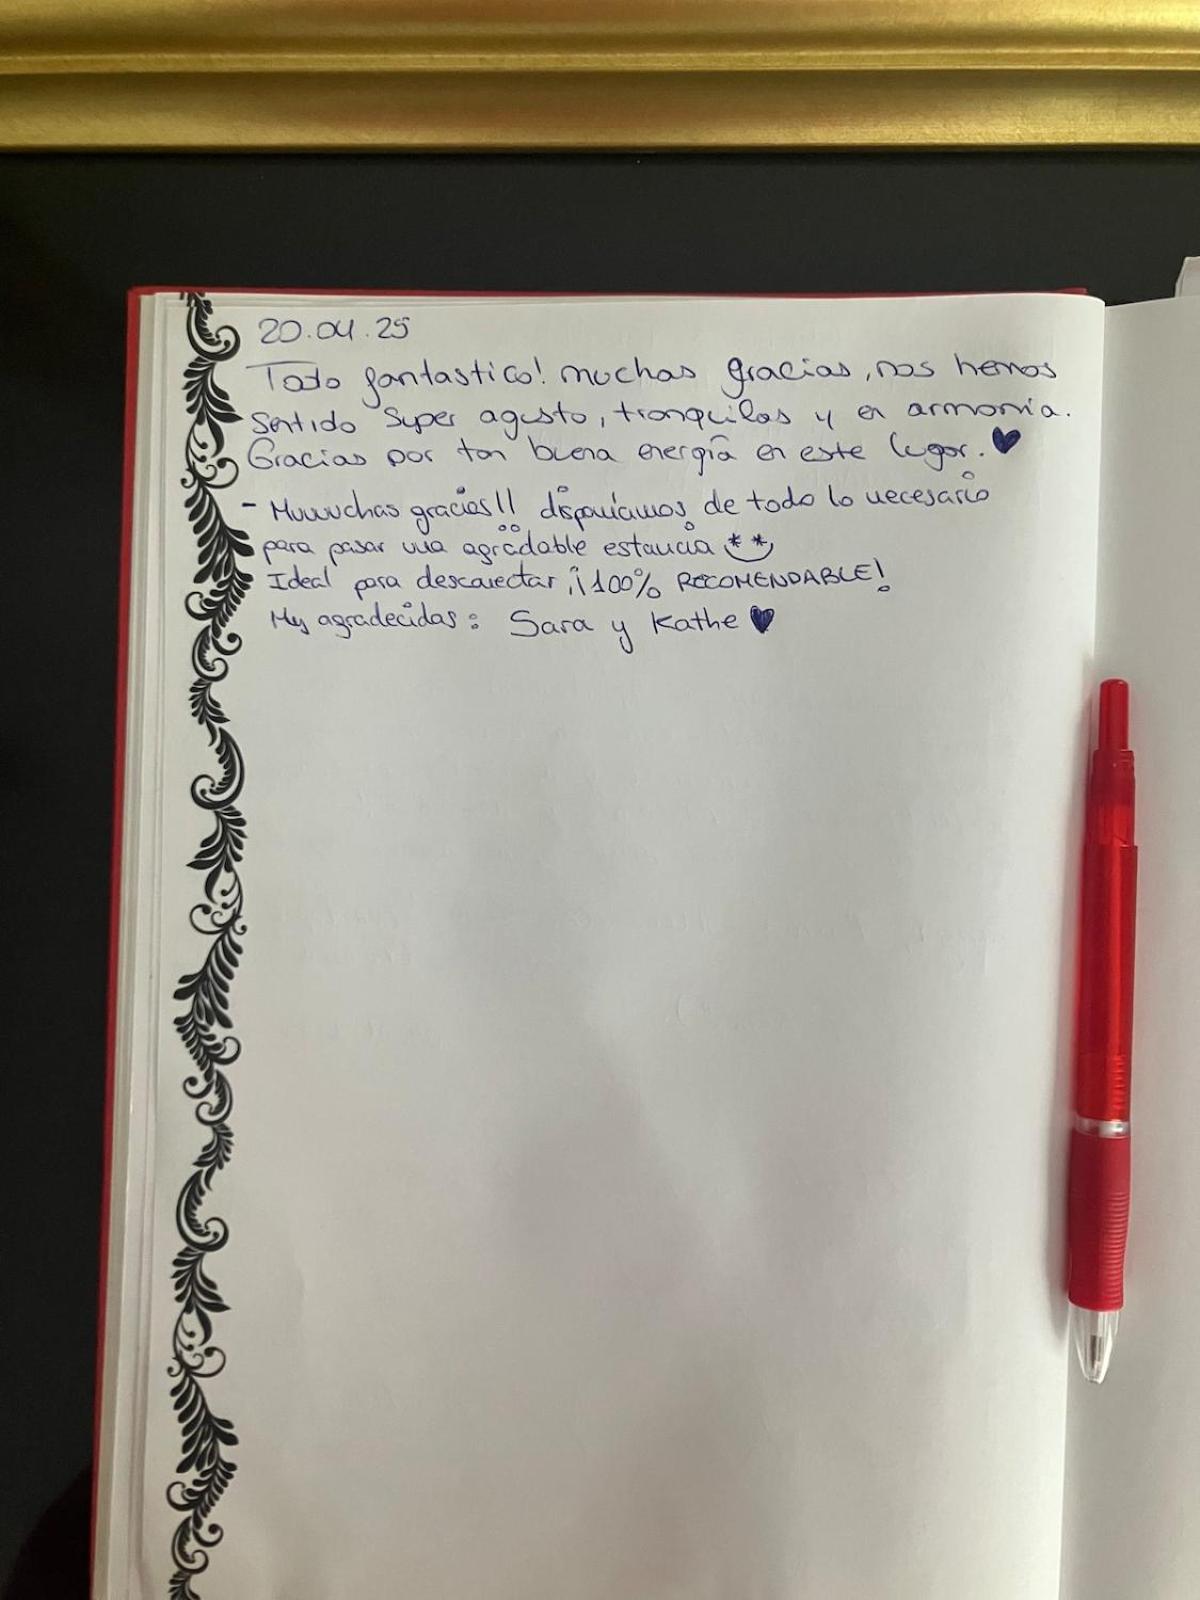 20.04.25
Todo fantastico! muchas gracias, nos hemos
sentido super agusto, tranquilas y en armonía.
Gracias por tan buena energía en este lugar. ♥
- Muuuchas gracias!! disponíamos de todo lo necesario
para pasar una agradable estancia
Ideal para desconectar ¡¡100% RECOMENDABLE!
Muy agradecidas: Sara y Kathe ♥